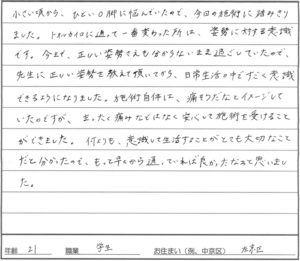 小さい頃から、ひどいO脚に悩んでいたので、今回の施術に踏みきり
ました。トルトカイロに通って一番変わった所は、姿勢に対する意識
です。今まで、正しい姿勢さえも分からないまま過ごしていたので、
先生に正しい姿勢を教えて頂いてから、日常生活の中ですごく意識
できるようになりました。施術自体は、痛そうだなとイメージして
いたのですが、まったく痛みなどはなく安心して施術を受けること
ができました。何よりも、意識して生活することがとても大切なこと
だと分かったので、もっと早くから通っていれば良かったなぁと思いまし
た。
年齢 21 職業 学生 お住まい（例、中京区） 左京区